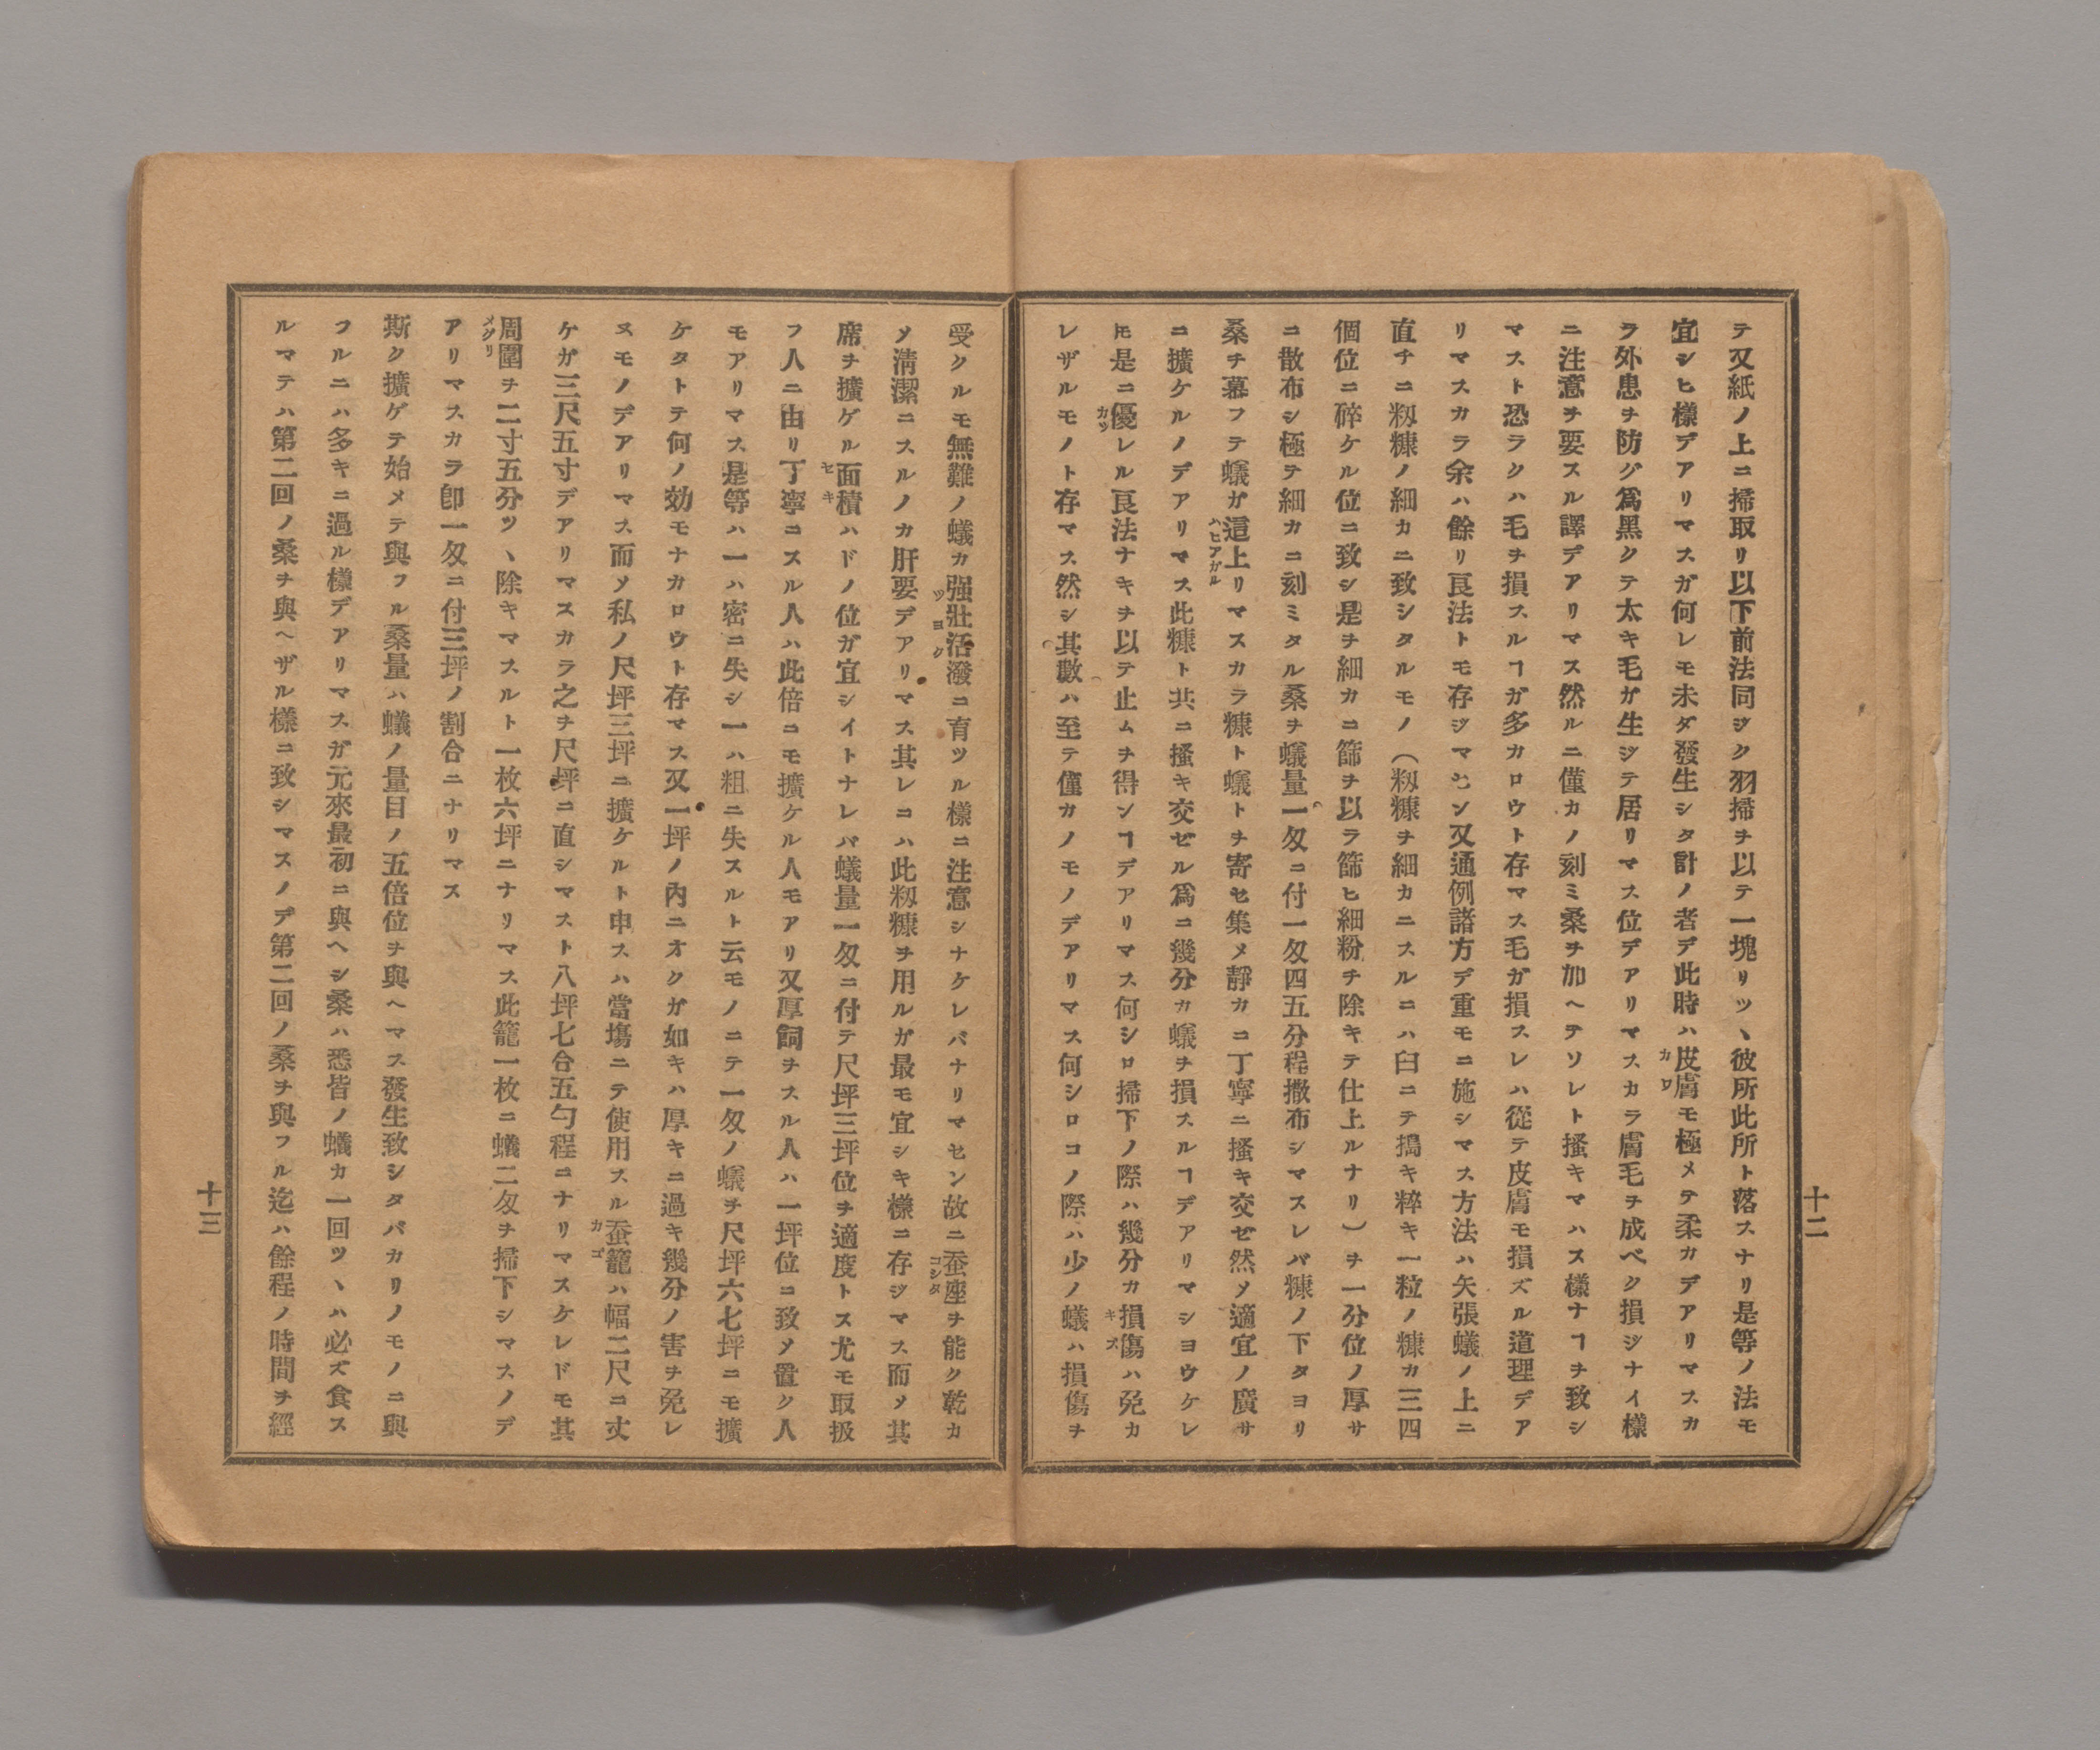 テ又紙ノ上ニ掃取リ以下前法同ジク羽掃ヲ以テ一塊リツヽ彼所此所ト落スナリ是等ノ法モ
宜シヒ樣デアリマスガ何レモ未ダ發生シタ計ノ者デ此時ハ皮膚モ極メテ柔カデアリマスカ
ラ外患ヲ防グ爲黑クテ太キ毛ガ生ジテ居リマス位デアリマスカラ膚毛ヲ成ベク損ジナイ樣
ニ注意ヲ要スル譯デアリマス然ルニ僅カノ刻ミ桑ヲ加ヘテソレト搔キマハス樣ナヿヲ致シ
マスト恐ラクハ毛ヲ損スルヿガ多カロウト存マス毛ガ損スレハ從テ皮膚モ損ズル道理デア
リマスカラ余ハ餘リ良法トモ存ジマセン又通例諸方デ重モニ施シマス方法ハ矢張蟻ノ上ニ
直チニ籾糠ノ細カニ致シタルモノ（籾糠ヲ細カニスルニハ臼ニテ搗キ粹キ一粒ノ糠カ三四
個位ニ碎ケル位ニ致シ是ヲ細カコ篩ヲ以ラ篩ヒ細粉チ除キテ仕上ルナリ）ヲ一分位ノ厚サ
ニ散布シ極テ細カニ刻ミタル桑ヲ蟻量一匁コ付一匁四五分程撒布シマスレバ糠ノ下タヨリ
桑チ慕フテ蟻ガ這上リマスカラ糠ト蟻トチ寄セ集メ靜カコ丁寧ニ搔キ交ゼ然メ適宜ノ廣サ
ニ擴ケルノデアリマス此糠ト共ニ搔キ交ゼル爲コ幾分カ蟻ヲ損スルヿデアリマシヨウケレ
ㇳモ是ニ優レル良法ナキヲ以テ止ムヲ得ンヿデアリマス何シロ掃下ノ際ハ幾分カ損傷ハ免カ
レザルモノト存マス然シ其數ハ至テ僅カノモノデアリマス何シロコノ際ハ少ノ蟻ハ損傷ヲ
十二
受クルモ無難ノ蟻カ强壯活潑コ育ツル樣ニ注意シナケレバナリマセン故ニ蚕座ヲ能ク乾カ
ソ淸潔ニスルノカ肝要デアリマス其レコハ此籾糠ヲ用ルガ最モ宜シキ樣コ存ジマス而ソ其
席ヲ擴ゲル面積ハドノ位ガ宜シイトナレバ蟻量一匁ニ付テ尺坪三坪位ヲ適度トス尤モ取扱
フ人ニ由リ丁寧コスル人ハ此倍コモ擴ケル人モアリ又厚飼ヲスル人ハ一坪位コ致メ置ク人
モアリマス是等ハ一ハ密ニ失シ一ハ粗ニ失スルト云モノニテ一匁ノ蟻ヲ尺坪六七坪ニモ擴
ケタトテ何ノ効モナカロウト存マス又一坪ノ內ニオクガ如キハ厚キニ過キ幾分ノ害ヲ免レ
ヌモノデアリマス而ソ私ノ尺坪三坪ニ擴ケルト申スハ當塲ニテ使用スル蚕籠ハ幅二尺コ丈
ケガ三尺五寸デアリマスカラ之ヲ尺坪コ直シマスト八坪七合五勺程コナリマスケレドモ其
周圍ヲ二寸五分ツヽ除キマスルト一枚六坪ニナリマス此籠一枚ニ蟻二匁ヲ掃下シマスノデ
アリマスカラ卽一匁ニ付三坪ノ割合ニナリマス
斯ク擴ゲテ始メテ與フル桑量ハ蟻ノ量目ノ五倍位ヲ與ヘマス發生致シタバカリノモノニ與
フルニハ多キニ過ル樣デアリマスガ元來最初ニ與ヘシ桑ハ悉皆ノ蟻カ一回ツヽハ必ズ食ス
ルマテハ第二回ノ桑チ與ヘザル樣コ致シマスノデ第二回ノ桑ヲ與フル迄ハ餘程ノ時間ヲ經
十三